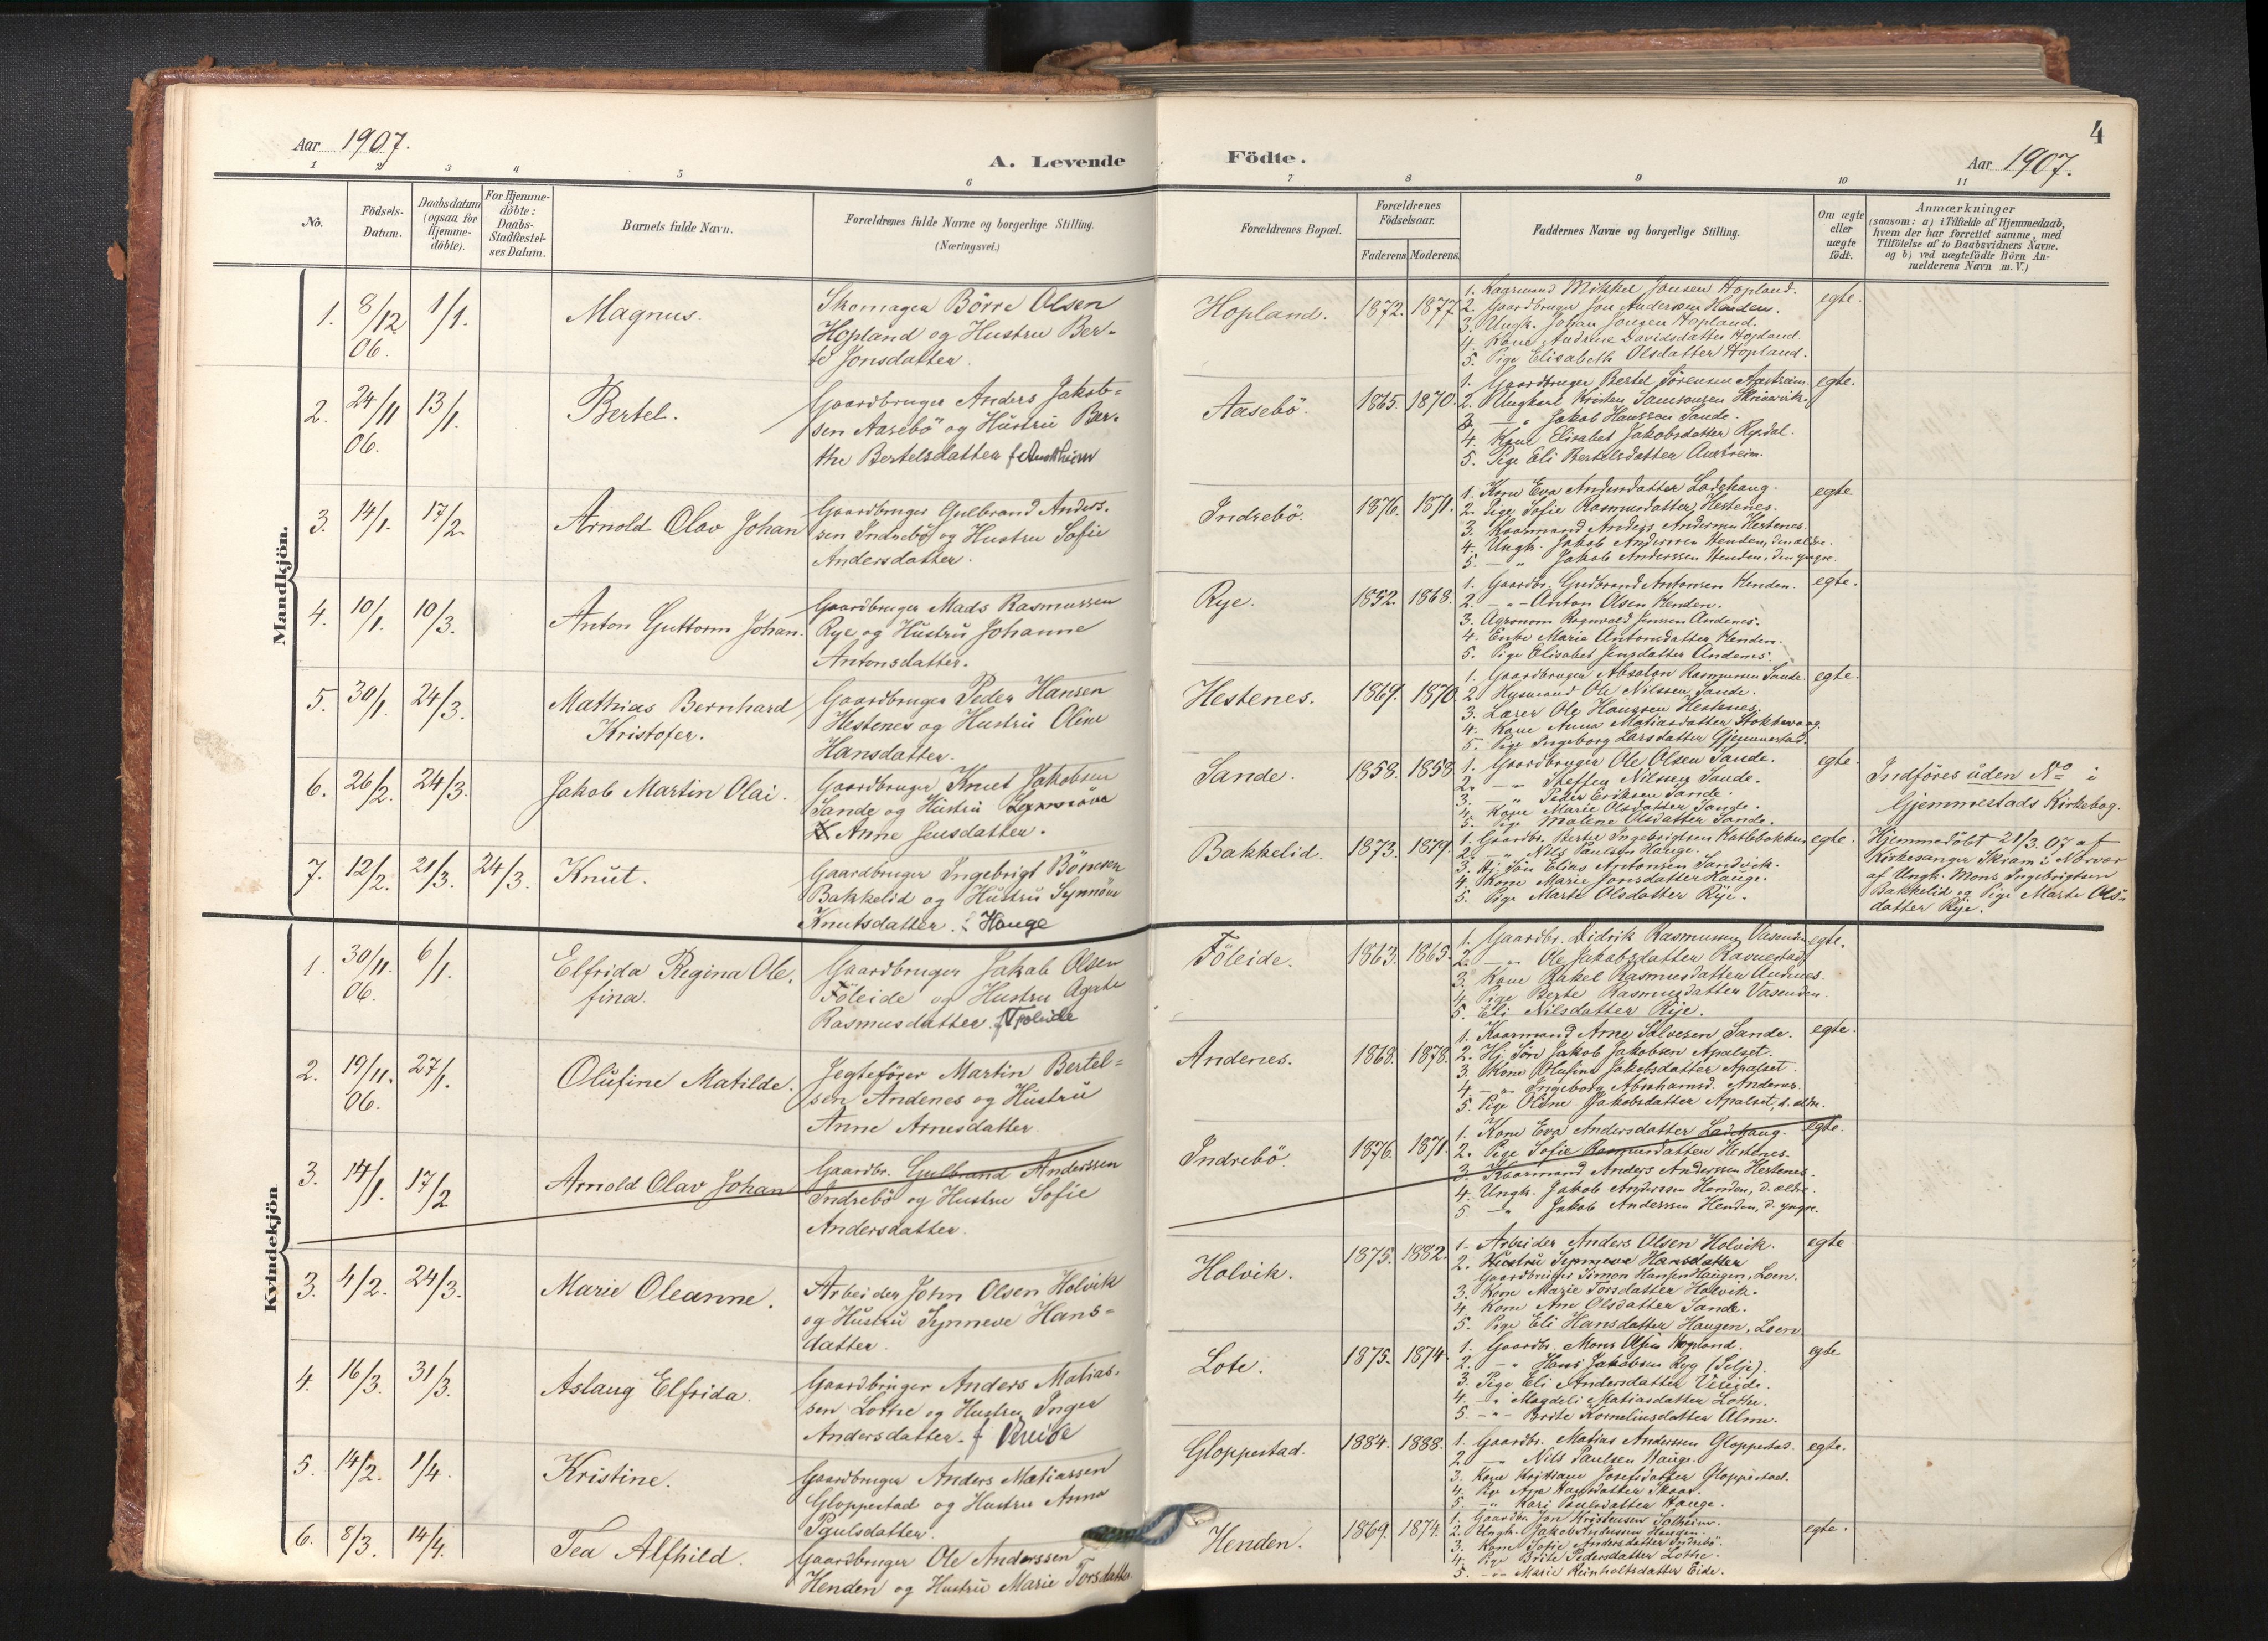 Aar 1907.
A. Levende
1 2 3 4 5 6
No.
Födsels-
Datum.
Daabsdatum
(ogsaa for
Hjemme-
döbte).
For Hjemme-
döbte:
Daabs-
Stadfestel-
ses Datum.
Barnets fulde Navn.
Forældrenes fulde Navne og borgerlige Stilling.
(Næringsvei.)
Mandkjön.
1. 8/12 06. 1/1. Magnus.
Skomager Börre Olsen
Hopland og Hustru Ber-
te Jonsdatter.
2. 24/11 06. 13/1. Bertel.
Gaardbruger Anders Jakob-
sen Aasebö og Hustru Ber-
the Bertelsdatter
3. 14/1. 17/2. Arnold Olav Johan
Gaardbruger Gulbrand Anders-
sen Indrebö og Hustru Sofie
Andersdatter.
4. 10/1. 10/3. Anton Guttorm Johan.
Gaardbruger Mads Rasmussen
Rye og Hustru Johanne
Antonsdatter.
5. 30/1. 24/3. Mathias Bernhard
Kristofer.
Gaardbruger Peder Hansen
Hestenes og Hustru Oline
Hansdatter.
6. 26/2. 24/3. Jakob Martin Olai.
Gaardbruger Knut Jakobsen
Sande og Hustru
Anne Jensdatter.
7. 12/2. 21/3. 24/3. Knut.
Gaardbruger Ingebrigt
Bakkelid og Hustru Synnöve
Knutsdatter. Hauge
Kvindekjön
1. 30/11. 06. 6/1. Elfrida Regina Ole-
fina.
Gaardbruger Jakob Olsen
Föleide og Hustru Agate
Rasmusdatter
2. 19/11. 06. 27/1. Olufine Matilde.
Jegtefører Martin Bertel-
sen Andenes og Hustru
Anne Arnesdatter.
3. 14/1. 17/2 Arnold Olav Johan
Gaardbr. Gulbrand Anderssen
Indrebö og Hustru Sofie
Andersdatter.
3. 4/2. 24/3. Marie Oleanne.
Arbeider John Olsen Holvik
og Hustru Synneve Hans-
datter.
4. 16/3. 31/3. Aslaug Elfrida.
Gaardbruger Anders Matias-
sen Lothe og Hustru Inger
Andersdatter.
5. 14/2. 1/4. Kristine.
Gaardbruger Anders Matiassen
Gloppestad og Hustru Anna
Paulsdatter.
6. 8/3. 14/4. Tea Alfhild.
Gaardbruger Ole Anderssen
Henden og Hustru Marie Torsdatter
4
Födte.
Aar 1907.
7 8 9 10 11
Forældrenes Bopæl.
Forældrenes
Födselsaar.
Faderens. Moderens.
Faddernes Navne og borgerlige Stilling.
Om ægte
eller
uægte
födt.
Anmærkninger
(saasom: a) i Tilfælde af Hjemmedaab,
hvem der har forrettet samme, med
Tilföielse af to Daabsvidners Navne.
og b) ved uægtefödte Börn An-
melderens Navn m.V.)
Hopland. 1872. 1877. egte.
1. Kaarmand Mikkel Jonsen Hopland.
2. Gaardbruger Jon Andersen Henden.
3. Ungk. Johan Jonsen Hopland.
4. Kone Andrine Davidsdatter Hopland.
5. Pige Elisabeth Olsdatter Hopland.
Aasebö. 1865. 1870. egte.
1. Gaardbruger Bertel Sörensen
2. Ungkarl Kristen Samsonsen
3. — " Jakob Hanssen Sande.
4. Kone Elisabet Jakobsdatter Rygdal.
5. Pige Eli Bertelsdatter Austreim.
Indrebö. 1876. 1871. egte
1. Kone Eva Andersdatter Ladehaug.
2. Pige Sofie Rasmusdatter Hestenes.
3. Kaarmand Anders Andersen Hestenes.
4. Ungk. Jakob Anderssen Henden, den ældre.
5. — " Jakob Anderssen Henden, den yngre.
Rye. 1852. 1868. egte.
1. Gaardbr. Gudbrand Antonsen Henden.
2. — " — Anton Olsen Henden.
3. Agronom Ragnvald Jensen Andenes.
4. Enke Marie Antonsdatter Henden.
5. Pige Elisabet Jensdatter Andenes.
Hestenes. 1869. 1870. egte.
1. Gaardbruger Absalon Rasmussen Sande.
2. Husmand Ole Nilssen Sande.
3. Lærer Ole Hanssen Hestenes.
4. Kone Anna Matiasdatter
5. Pige Ingeborg Larsdatter Gjemmestad.
Sande. 1858. 1858 egte.
1. Gaardbruger Ole Olsen Sande.
2. — " Steffen Nilssen Sande.
3. — " Peder Eriksen Sande.
4. Kone Marie Olsdatter Sande.
5. Pige Malene Olsdatter Sande.
Indföres uden No i
Gjemmestads Kirkebog.
Bakkelid. 1873. 1879. egte.
1. Gaardbr. Bertel Ingebrigtsen
2. — " Nils Paulsen Hauge.
3. Hj. Sön Elias Antonsen Sandvik.
4. Kone Marie Jonsdatter Hauge.
5. Pige Marte Olsdatter Rye.
Hjemmedöbt 21/3.07 af
Kirkesanger Skram i Nærvær
af Ungk. Mons Ingebrigtsen
Bakkelid og Pige Marte Ols-
datter Rye.
Föleide. 1863. 1865. egte.
1. Gaardbr. Didrik Rasmussen Vasenden
2. — " Ole Jakobsdatter Ravnestad
3. Kone Rakel Rasmusdatter Andenes.
4. Pige Berte Rasmusdatter Vasenden.
5. Eli Nilsdatter Rye.
Andenes. 1868. 1878. egte.
1. Kaarmand Arne Salvesen Sande.
2. Hj. Sön Jakob Jakobsen Apalset.
3. Kone Olufine Jakobsdatter Apalset.
4. — " Ingeborg Abrahamsd. Andenes.
5. Pige Oline Jakobsdatter Apalset, d. ældre.
Indrebö. 1876. 1871. egte.
1. Kone Eva Andersdatter Ladehaug.
2. Pige Sofie Rasmusdatter Hestenes.
3. Kaarmand Anders Anderssen Hestenes.
4. Ungk. Jakob Anderssen Henden, d. ældre.
5. — " Jakob Anderssen Henden, d. yngre.
Holvik. 1875. 1882. egte
1. Arbeider Anders Olsen Holvik.
2. Hustru Synneve Hansdatter
Gaardbruger Simon Hansen Haugen, Loen.
3. Kone Marie Torsdatter Holvik.
4. Kone Ane Olsdatter Sande.
5. Pige Eli Hansdatter Haugen, Loen.
Lote. 1875. 1874. egte
1. Gaardbr. Mons Olsen Hopland.
2. — " Hans Jakobsen Ryg (Selje).
3. Pige Eli Andersdatter Vereide.
4. — " Magdeli Matiasdatter Lothe.
5. — " — Brite Korneliusdatter Alme.
Gloppestad. 1884. 1888. egte.
1. Gaardbr. Matias Anderssen Gloppestad.
2. — " Nils Paulsen Hauge.
3. Kone Kristiane Josefsdatter Gloppestad.
4. Pige Hansdatter
5. — " Kari Paulsdatter Hauge.
Henden. 1869. 1874. egte.
1. Gaardbr. Jon Kristensen Solheim.
2. Ungk. Jakob Anderssen Henden.
3. Kone Sofie Andersdatter Indrebö.
4. Pige Brite Pedersdatter Lothe.
5. — " — Marie Reinholtsdatter Eide.